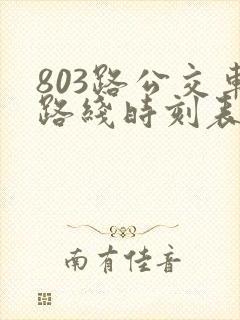 803路公交車
路綫時刻表
南有佳音